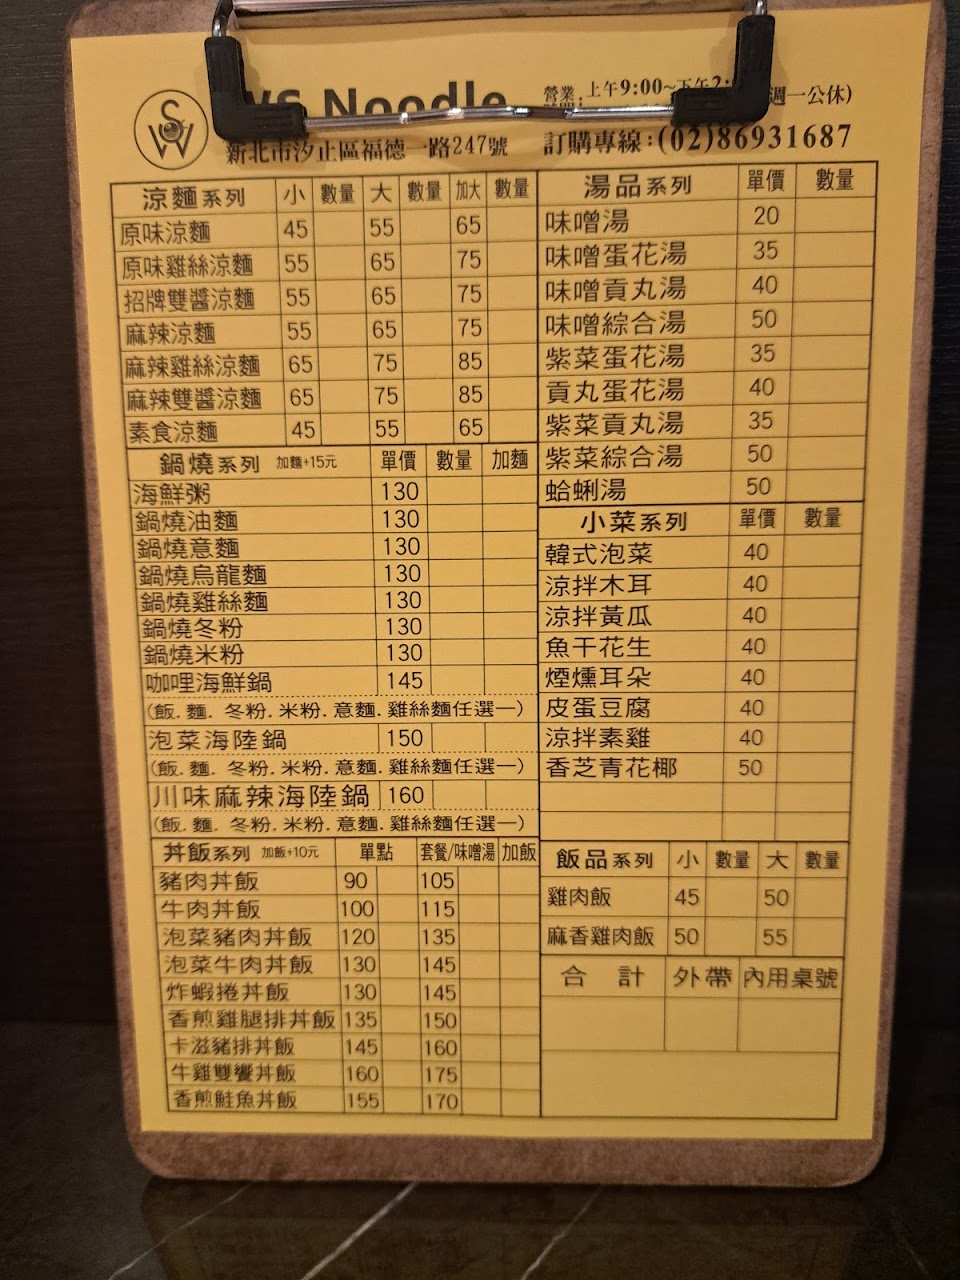 WS Noodle
營業 上午9:00~下午2: 週一公休)
新北市汐止區福德一路247號
訂購專線:(02)86931687
涼麵系列 小 數量 大 數量 加大 數量
原味涼麵 45 55 65
原味雞絲涼麵 55 65 75
招牌雙醬涼麵 55 65 75
麻辣涼麵 55 65 75
麻辣雞絲涼麵 65 75 85
麻辣雙醬涼麵 65 75 85
素食涼麵 45 55 65
鍋燒系列 加麵+15元 單價 數量 加麵
海鮮粥 130
鍋燒油麵 130
鍋燒意麵 130
鍋燒烏龍麵 130
鍋燒雞絲麵 130
鍋燒冬粉 130
鍋燒米粉 130
咖哩海鮮鍋 145
(飯.麵.冬粉.米粉.意麵.雞絲麵任選一)
泡菜海陸鍋 150
(飯.麵.冬粉.米粉.意麵.雞絲麵任選一)
川味麻辣海陸鍋 160
(飯.麵.冬粉.米粉.意麵.雞絲麵任選一)
丼飯系列 加飯+10元 單點 套餐/味噌湯 加飯
豬肉丼飯 90 105
牛肉丼飯 100 115
泡菜豬肉丼飯 120 135
泡菜牛肉丼飯 130 145
炸蝦捲丼飯 130 145
香煎雞腿排丼飯 135 150
卡滋豬排丼飯 145 160
牛雞雙饗丼飯 160 175
香煎鮭魚丼飯 155 170
湯品系列 單價 數量
味噌湯 20
味噌蛋花湯 35
味噌貢丸湯 40
味噌綜合湯 50
紫菜蛋花湯 35
貢丸蛋花湯 40
紫菜貢丸湯 35
紫菜綜合湯 50
蛤蜊湯 50
小菜系列 單價 數量
韓式泡菜 40
涼拌木耳 40
涼拌黃瓜 40
魚干花生 40
煙燻耳朵 40
皮蛋豆腐 40
涼拌素雞 40
香芝青花椰 50
飯品系列 小 數量 大 數量
雞肉飯 45 50
麻香雞肉飯 50 55
合計 外帶 內用桌號